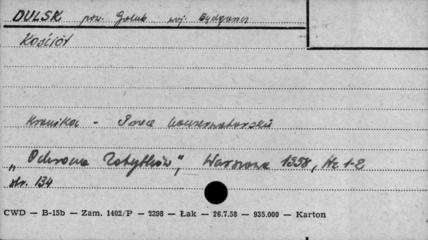 DULSK pow. Golub woj. Bydgoszcz
Kościół
Kronika - Prace konserwatorskie
"Ochrona Zabytków", Warszawa 1958, Nr. 1-2
str. 134
CWD — B-15b — Zam. 1402/P — 2298 — Łak — 26.7.58 — 935.000 — Karton